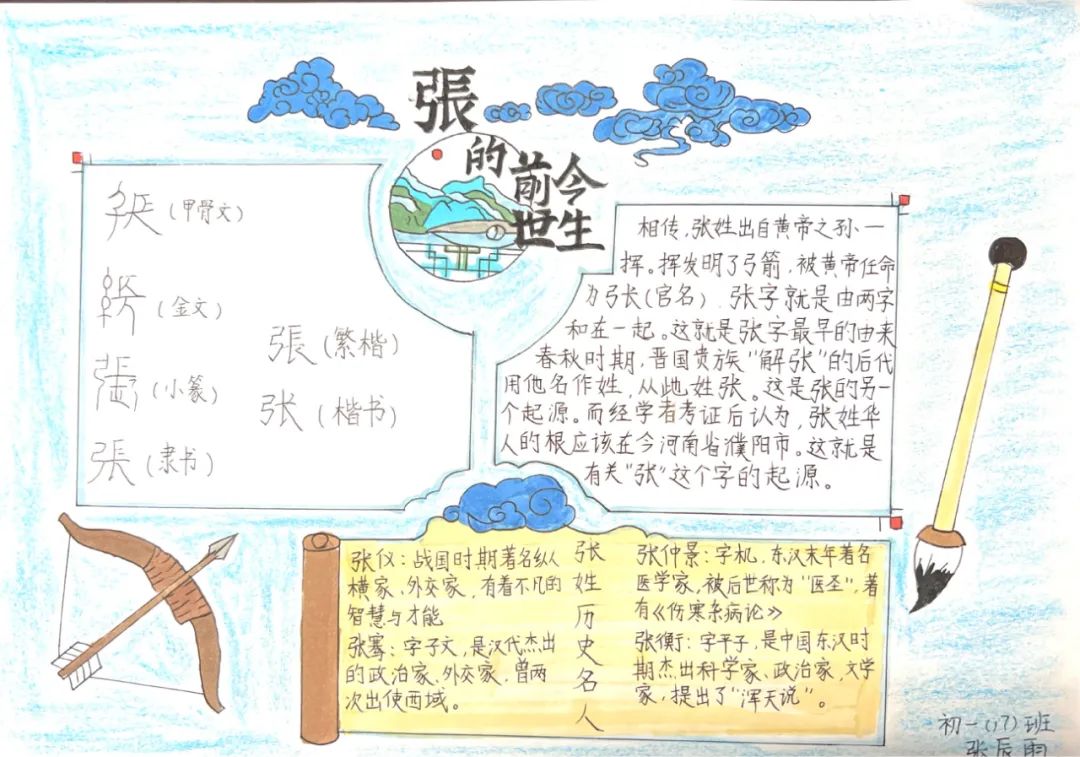 張的前世今生
(甲骨文)
(金文)
(小篆)
張(隶书)
張(繁楷)
张(楷书)
相传,张姓出自黄帝之孙一
挥。挥发明了弓箭,被黄帝任命
为弓长(官名)张字就是由两字
和在一起。这就是张字最早的由来
春秋时期,晋国贵族“解张”的后代
用他名作姓,从此姓张。这是张的另一
个起源。而经学者考证后认为,张姓华
人的根应该在今河南省濮阳市。这就是
有关“张”这个字的起源。
张仪:战国时期著名纵
横家、外交家,有着不凡的
智慧与才能
张骞:字子文,是汉代杰出
的政治家、外交家,曾两
次出使西域。
张姓历史名人
张仲景:字机,东汉末年著名
医学家,被后世称为“医圣”,著
有《伤寒杂病论》
张衡:字平子,是中国东汉时
期杰出科学家、政治家,文学
家,提出了“浑天说”。
初一(17)班
张辰雨